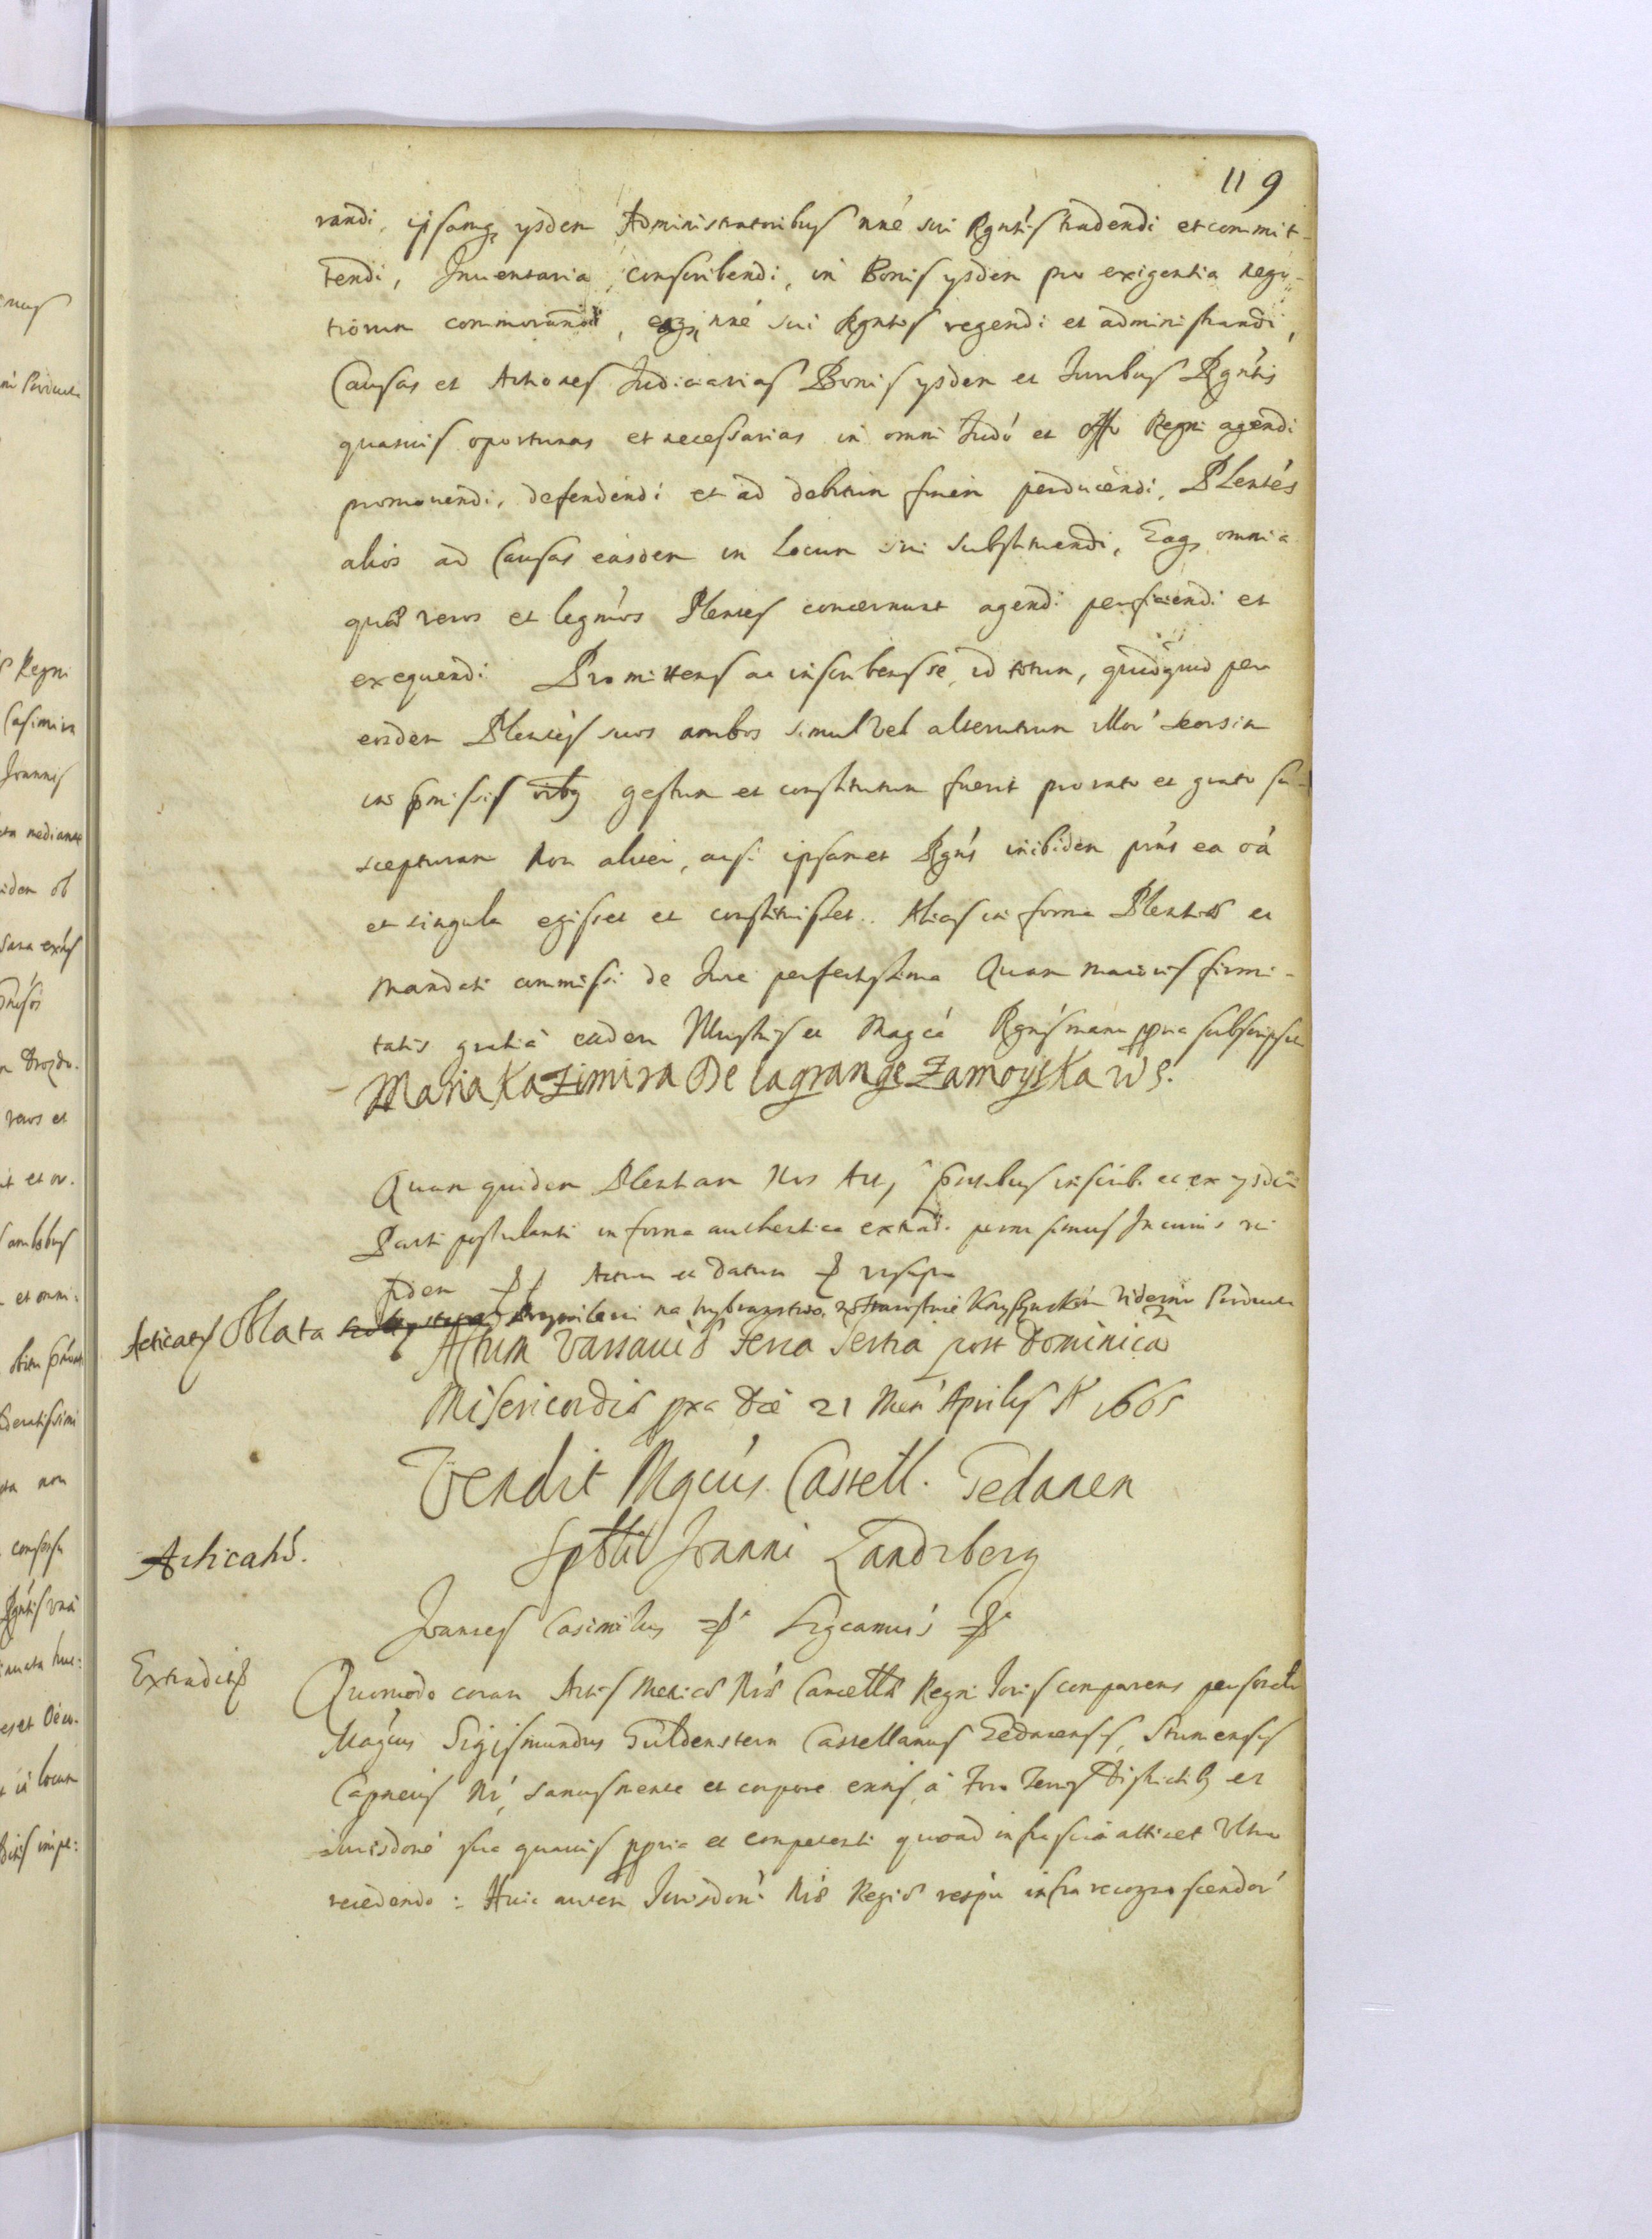 119
randi, ipsamq ysdem Administratoribus nné sui Rgntis tradendi et commit-
tendi, Inuentaria conscribendi, in Bonis ysdem pro exigentia nego-
tiorum commorandi, eaq nné sui Rgntis regendi et administrandi,
Causas et Actiones Judiciarias Bonis ysdem et Iuribus Rgntis
quasuis oportunas et necessarias in omni Judó et Offo Regni agendi
promouendi, defendendi et ad debitum finem perducendi, Plentés
alios ad Causas easdem in Locum sui substituendi, Eaq omnia
quae veros et legmos Plentes concernunt agendi perficiendi et
exequendi Promittens ac inscribens se, id totum, quidquid per
eosdem Plentes suos ambos simul vel alterutrum illor seorsim
in pmissis gestum et constitutum fuerit pro rato et grato su-
scepturam Non aliter, acsi ipsamet Rgns inibidem pns ea oá
et singula egisset et constituisset. Alias in forma Plentiae et
Mandati commissi de Iure perfectissima Quam maioris firmi-
tatis gratiá eadem Illustris et Magca Rgns manu ppria subscripsit
Maria Kazimira De Lagrange Zamoyska W S.
Quam quidem Plentiam Nos Act, pntibus inscrib. et ex ysdem
Parti postulanti in forma authentica extrad. permisimus In cuius rei
fidem Actum et Datum vt supra
Acticatis Oblata Przywileiu na wybraństwo, w Starostwie Vidernr Producta
Actum Varsauiae feria sexta post Dominica
Misericordiae pxa Die 21 Men Aprilis A 1665
Vendit Mgcus Castell. Gedanen
Sptbli Joanni Landzberg
Acticatis.
Joannes Casimirus Sigcamus
Extradit
Quomodo coram Actis Metices Nris Cancellae Regni Ioris comparens personaliter
Magcus Sigismundus Guldenstern Castellanus Gedanensis, Stumensis
Capneus Nr, sanus mente et corpore exns, á Foro Terris Districtib et
iurisdone sua quauis ppria et competenti quoad infrascra attinet vltro
recedendo: Huic autem Iurisdoni Nrae Regiae respu infra recognoscendor